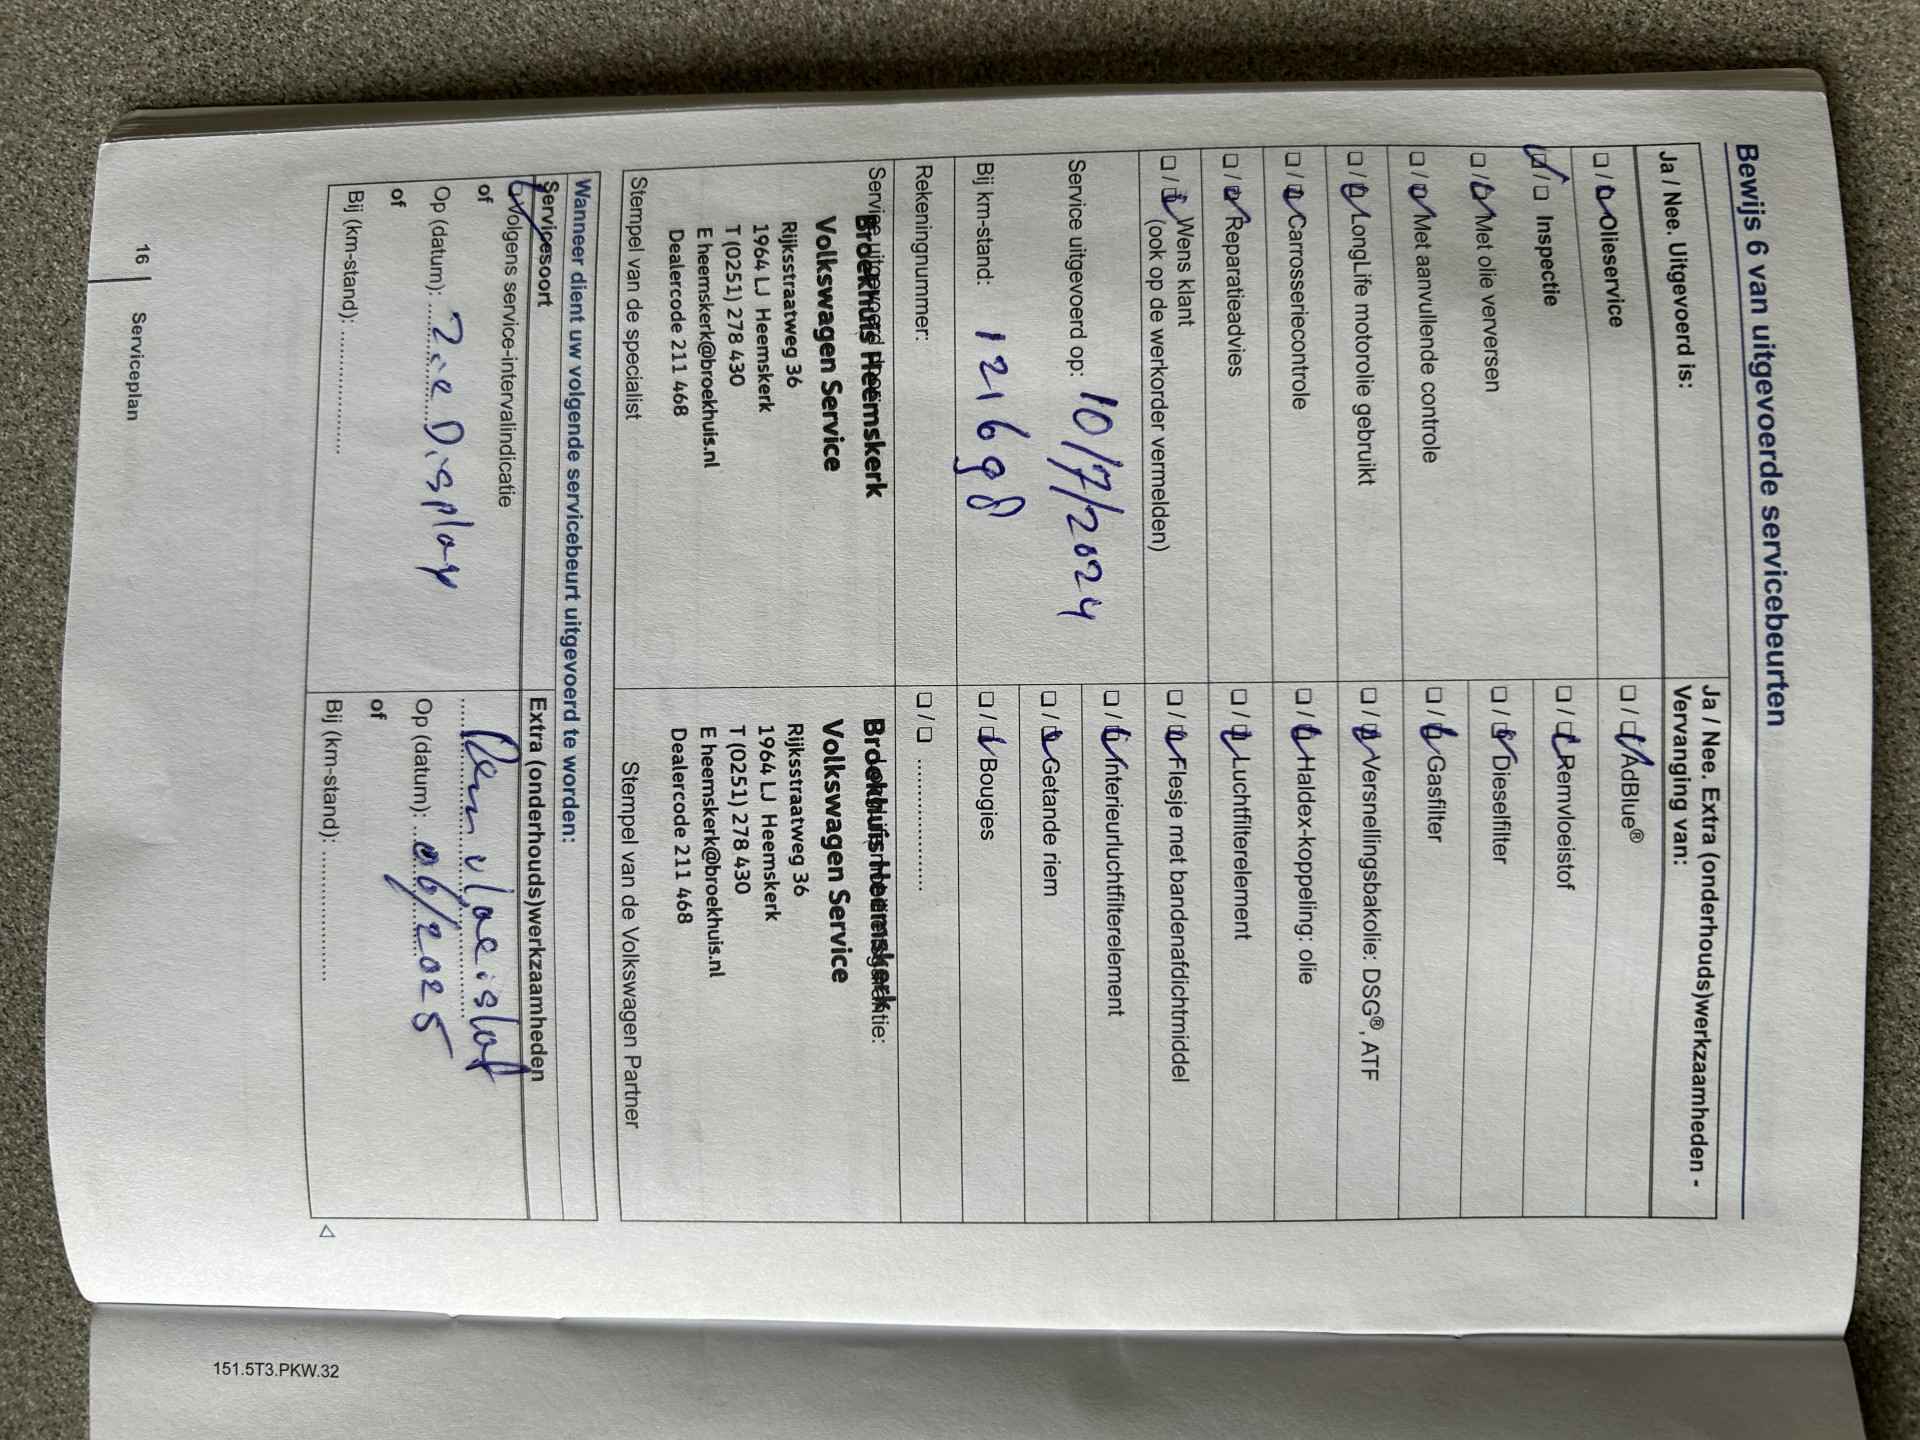 Bewijs 6 van uitgevoerde servicebeurten
Ja / Nee. Uitgevoerd is:
❑ / ❑ Olieservice
❑ / ❑ Inspectie
❑ / ❑ Met olie verversen
❑ / ❑ Met aanvullende controle
❑ / ❑ LongLife motorolie gebruikt
❑ / ❑ Carrosseriecontrole
❑ / ❑ Reparatieadvies
❑ / ❑ Wens klant
(ook op de werkorder vermelden)
Service uitgevoerd op: 10/7/2024
Bij km-stand: 121698
Rekeningnummer:
Service uitgevoerd
Broekhuis Heemskerk
Volkswagen Service
Rijksstraatweg 36
1964 LJ Heemskerk
T (0251) 278 430
E heemskerk@broekhuis.nl
Dealercode 211 468
Stempel van de specialist
Ja / Nee. Extra (onderhouds)werkzaamheden -
Vervanging van:
❑ / ❑ AdBlue®
❑ / ❑ Remvloeistof
❑ / ❑ Dieselfilter
❑ / ❑ Gasfilter
❑ / ❑ Versnellingsbakolie: DSG®, ATF
❑ / ❑ Haldex-koppeling: olie
❑ / ❑ Luchtfilterelement
❑ / ❑ Flesje met bandenafdichtmiddel
❑ / ❑ Interieurluchtfilterelement
❑ / ❑ Getande riem
❑ / ❑ Bougies
❑ / ❑ ......................
Broekhuis Heemskerk
Volkswagen Service
Rijksstraatweg 36
1964 LJ Heemskerk
T (0251) 278 430
E heemskerk@broekhuis.nl
Dealercode 211 468
Stempel van de Volkswagen Partner
Wanneer dient uw volgende servicebeurt uitgevoerd te worden:
Servicesoort
❑ Volgens service-intervalindicatie
of
Op (datum): Zie Display
of
Bij (km-stand): ....................
Extra (onderhouds)werkzaamheden
Remvloeistof
Op (datum): 06/2025
of
Bij (km-stand): ....................
16 Serviceplan
151.5T3.PKW.32